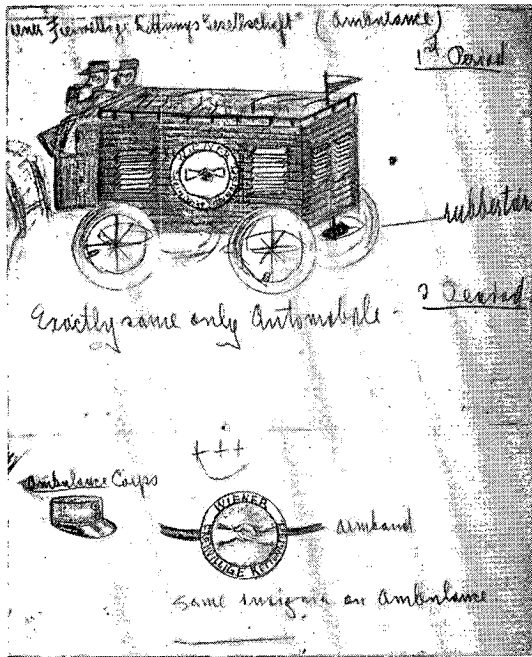 iener Freiwillige Rettungs Gesellschaft" (Ambulance)
1st Period
rubbertire
2 Period
Exactly same only Automobile -
Ambulance Corps
WIENER
FREIWILLIGE RETTUNGS
armband
same insignia on Ambulance